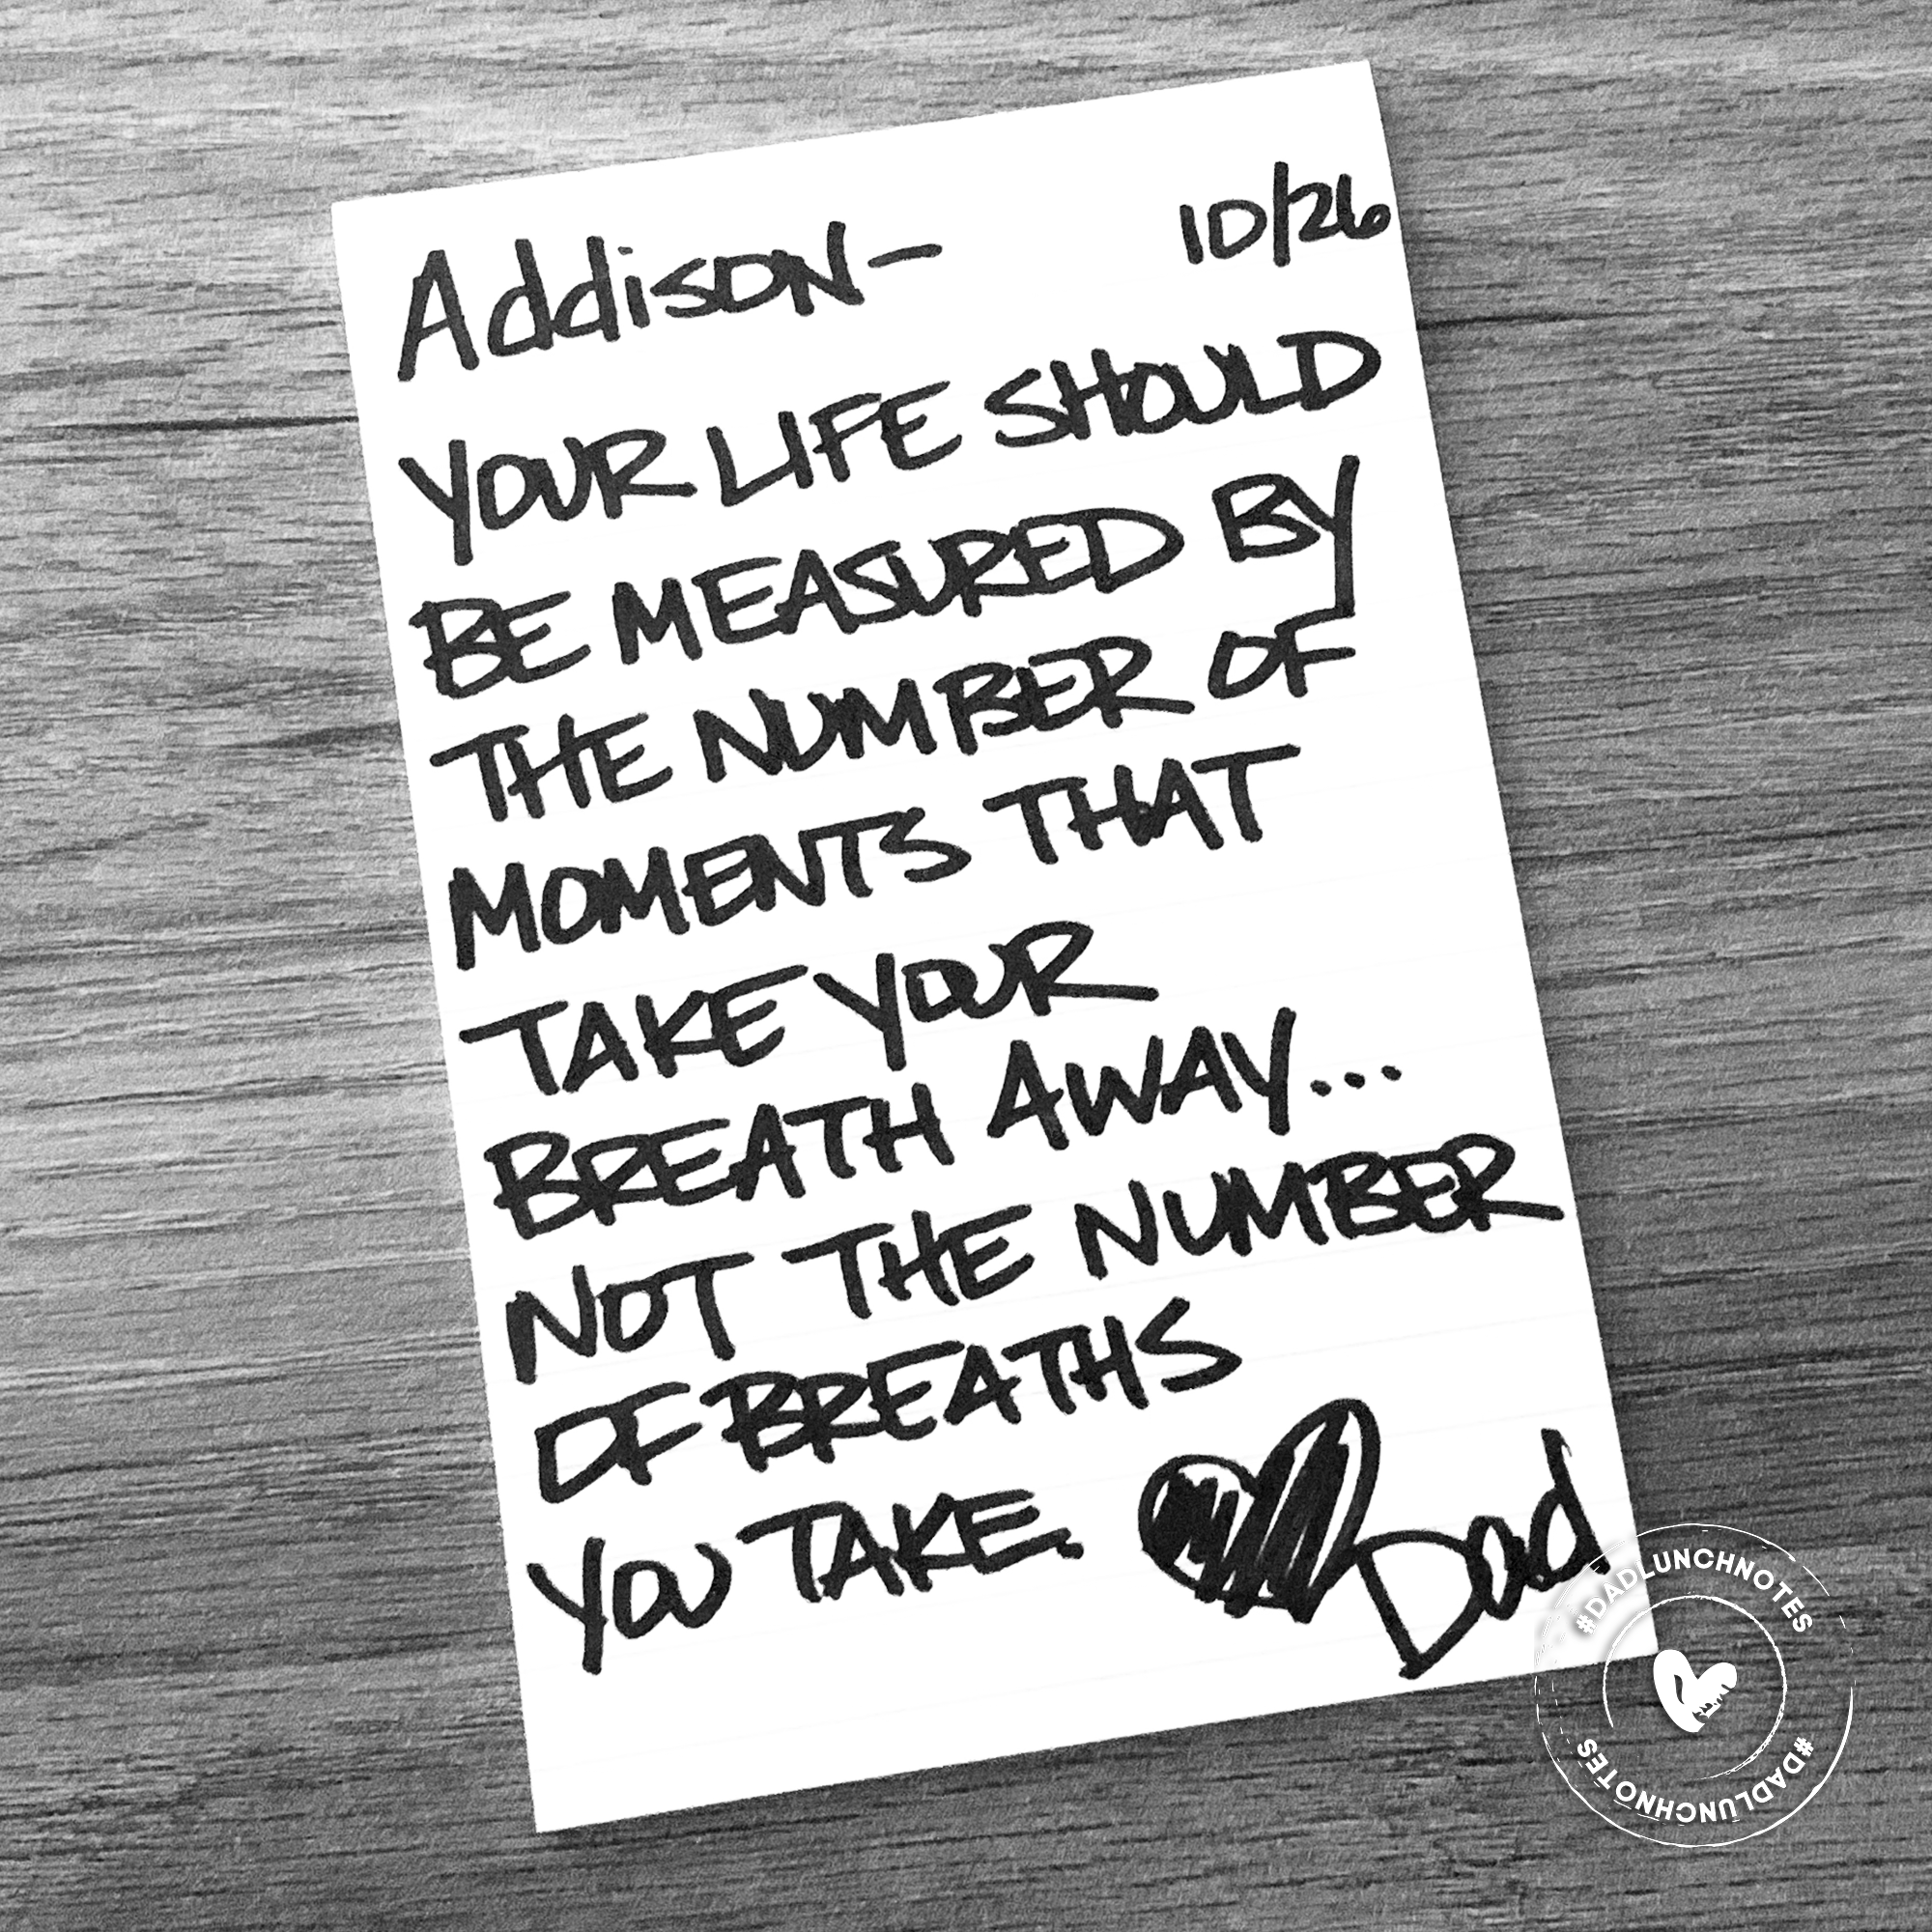 Addison— 10/26
YOUR LIFE SHOULD
BE MEASURED BY
THE NUMBER OF
MOMENTS THAT
TAKE YOUR
BREATH AWAY...
NOT THE NUMBER
OF BREATHS
YOU TAKE.
Dad
#DADLUNCHNOTES
#DADLUNCHNOTES